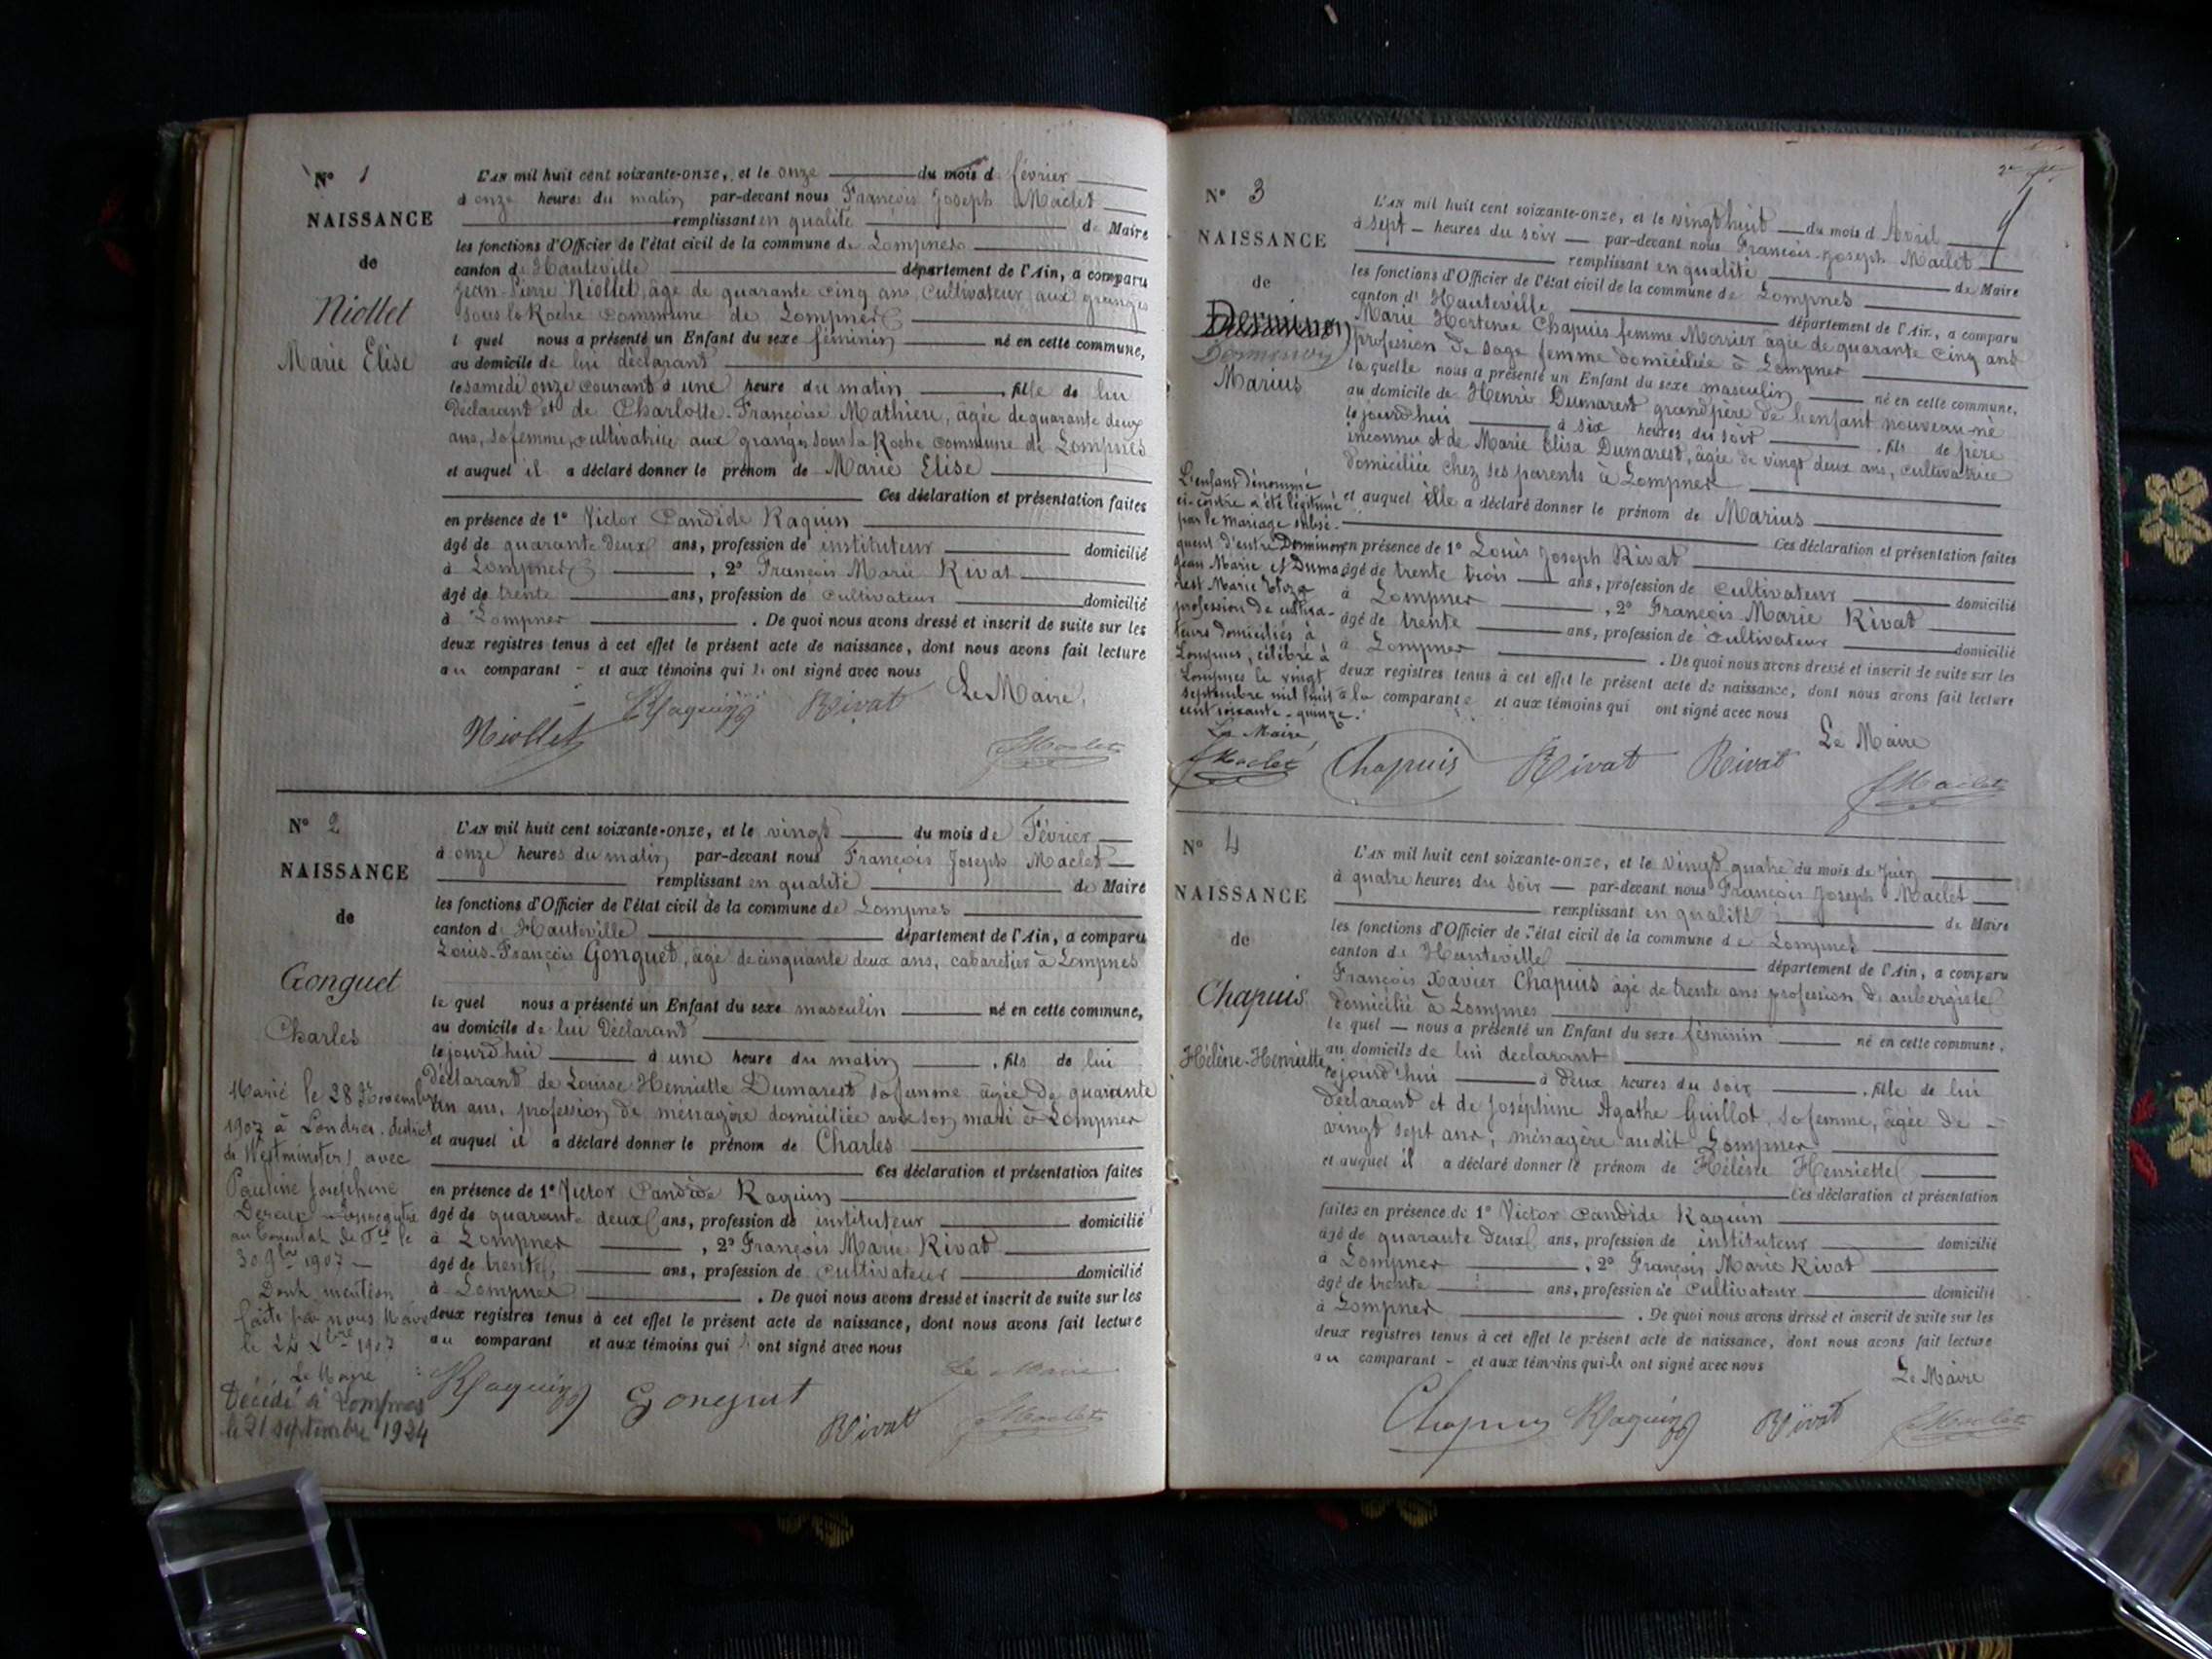 N° 1
NAISSANCE
de
Niollet
Marie Elise
L'AN mil huit cent soixante-onze, et le onze du mois d février
à onze heures du matin par-devant nous François Joseph Maclet
remplissant en qualité de Maire
les fonctions d'Officier de l'état civil de la commune de Lompnes
canton d Hauteville département de l'Ain, a comparu
Jean-Pierre Niollet, âgé de quarante cinq ans, cultivateur aux granges
sous la Roche commune de Lompnes
l quel nous a présenté un Enfant du sexe féminin né en cette commune,
au domicile de lui déclarant
le samedi onze courant à une heure du matin fille de lui
déclarant et de Charlotte-Françoise Mathieu, âgée de quarante deux
ans, sa femme, cultivatrice aux granges sous la Roche commune de Lompnes
et auquel il a déclaré donner le prénom de Marie Elise
Ces déclaration et présentation faites
en présence de 1° Victor Candide Raquin
âgé de quarante deux ans, profession de instituteur domicilié
à Lompnes , 2° François Marie Rivat
âgé de trente ans, profession de cultivateur domicilié
à Lompnes . De quoi nous avons dressé et inscrit de suite sur les
deux registres tenus à cet effet le présent acte de naissance, dont nous avons fait lecture
au comparant et aux témoins qui ont signé avec nous
Le Maire,
Niollet Raquin Rivat
Maclet
N° 2
NAISSANCE
de
Gonguet
Charles
L'AN mil huit cent soixante-onze, et le vingt du mois de Février
à onze heures du matin par-devant nous François Joseph Maclet
remplissant en qualité de Maire
les fonctions d'Officier de l'état civil de la commune de Lompnes
canton d Hauteville département de l'Ain, a comparu
Louis-François Gonguet, âgé de cinquante deux ans, cabaretier à Lompnes
le quel nous a présenté un Enfant du sexe masculin né en cette commune,
au domicile de lui déclarant
le jourd'hui à une heure du matin , fils de lui
déclarant de Louise Henriette Dumarest sa femme âgée de quarante
un ans, profession de ménagère domiciliée avec son mari à Lompnes
et auquel il a déclaré donner le prénom de Charles
Ces déclaration et présentation faites
en présence de 1° Victor Candide Raquin
âgé de quarante deux ans, profession de instituteur domicilié
à Lompnes , 2° François Marie Rivat
âgé de trente ans, profession de cultivateur domicilié
à Lompnes . De quoi nous avons dressé et inscrit de suite sur les
deux registres tenus à cet effet le présent acte de naissance, dont nous avons fait lecture
au comparant et aux témoins qui ont signé avec nous
Le Maire
Raquin Gonguet Rivat Maclet
Marié le 28 Novembre
1907 à Londres, district
de Westminster, avec
Pauline Joséphine
enregistré
au Consulat de le
30 9bre 1907
Dont mention
faite par nous Maire
le 24 Xbre 1907
Le Maire
Décédé à Lompnes
le 21 septembre 1934
N° 3
NAISSANCE
de
Derminon
Dominon
Marius
L'AN mil huit cent soixante-onze, et le vingt huit du mois d Avril
à sept heures du soir par-devant nous François-Joseph Maclet
remplissant en qualité de Maire
les fonctions d'Officier de l'état civil de la commune de Lompnes
canton d' Hauteville département de l'Ain, a comparu
Marie Hortense Chapuis femme Morrier âgée de quarante cinq ans
profession de sage femme domiciliée à Lompnes
la quelle nous a présenté un Enfant du sexe masculin né en cette commune,
au domicile de Henri Dumarest grandpère de l'enfant nouveau-né
le jourd'hui à six heures du soir , fils de père
inconnu et de Marie Elisa Dumarest, âgée de vingt deux ans, cultivatrice
domiciliée chez ses parents à Lompnes
et auquel elle a déclaré donner le prénom de Marius
Ces déclaration et présentation faites
en présence de 1° Louis Joseph Rivat
âgé de trente trois ans, profession de cultivateur domicilié
à Lompnes , 2° François Marie Rivat
âgé de trente ans, profession de cultivateur domicilié
à Lompnes . De quoi nous avons dressé et inscrit de suite sur les
deux registres tenus à cet effet le présent acte de naissance, dont nous avons fait lecture
à la comparante et aux témoins qui ont signé avec nous
Le Maire
Chapuis Rivat Rivat Maclet
L'enfant dénommé
ci-contre a été légitimé
par le mariage subsé-
quent d'entre Dominon
Jean Marie et Duma-
rest Marie Eliza
profession de cultiva-
teurs domiciliés à
Lompnes, célébré à
Lompnes le vingt
septembre mil huit
cent soixante-quinze.
Le Maire,
Maclet
N° 4
NAISSANCE
de
Chapuis
Hélène-Henriette
L'AN mil huit cent soixante-onze, et le vingt quatre du mois de Juin
à quatre heures du soir par-devant nous François Joseph Maclet
remplissant en qualité de Maire
les fonctions d'Officier de l'état civil de la commune de Lompnes
canton d. Hauteville département de l'Ain, a comparu
François Xavier Chapuis âgé de trente ans profession d aubergiste
domicilié à Lompnes
le quel nous a présenté un Enfant du sexe féminin né en cette commune,
au domicile de lui déclarant
le jourd'hui à deux heures du soir , fille de lui
déclarant et de Joséphine Agathe Guillot, sa femme, âgée de
vingt sept ans, ménagère audit Lompnes
et auquel il a déclaré donner le prénom de Hélène Henriette
Ces déclaration et présentation
faites en présence de 1° Victor Candide Raquin
âgé de quarante deux ans, profession de instituteur domicilié
à Lompnes , 2° François Marie Rivat
âgé de trente ans, profession de cultivateur domicilié
à Lompnes . De quoi nous avons dressé et inscrit de suite sur les
deux registres tenus à cet effet le présent acte de naissance, dont nous avons fait lecture
au comparant et aux témoins qui ont signé avec nous
Le Maire
Chapuis Raquin Rivat Maclet